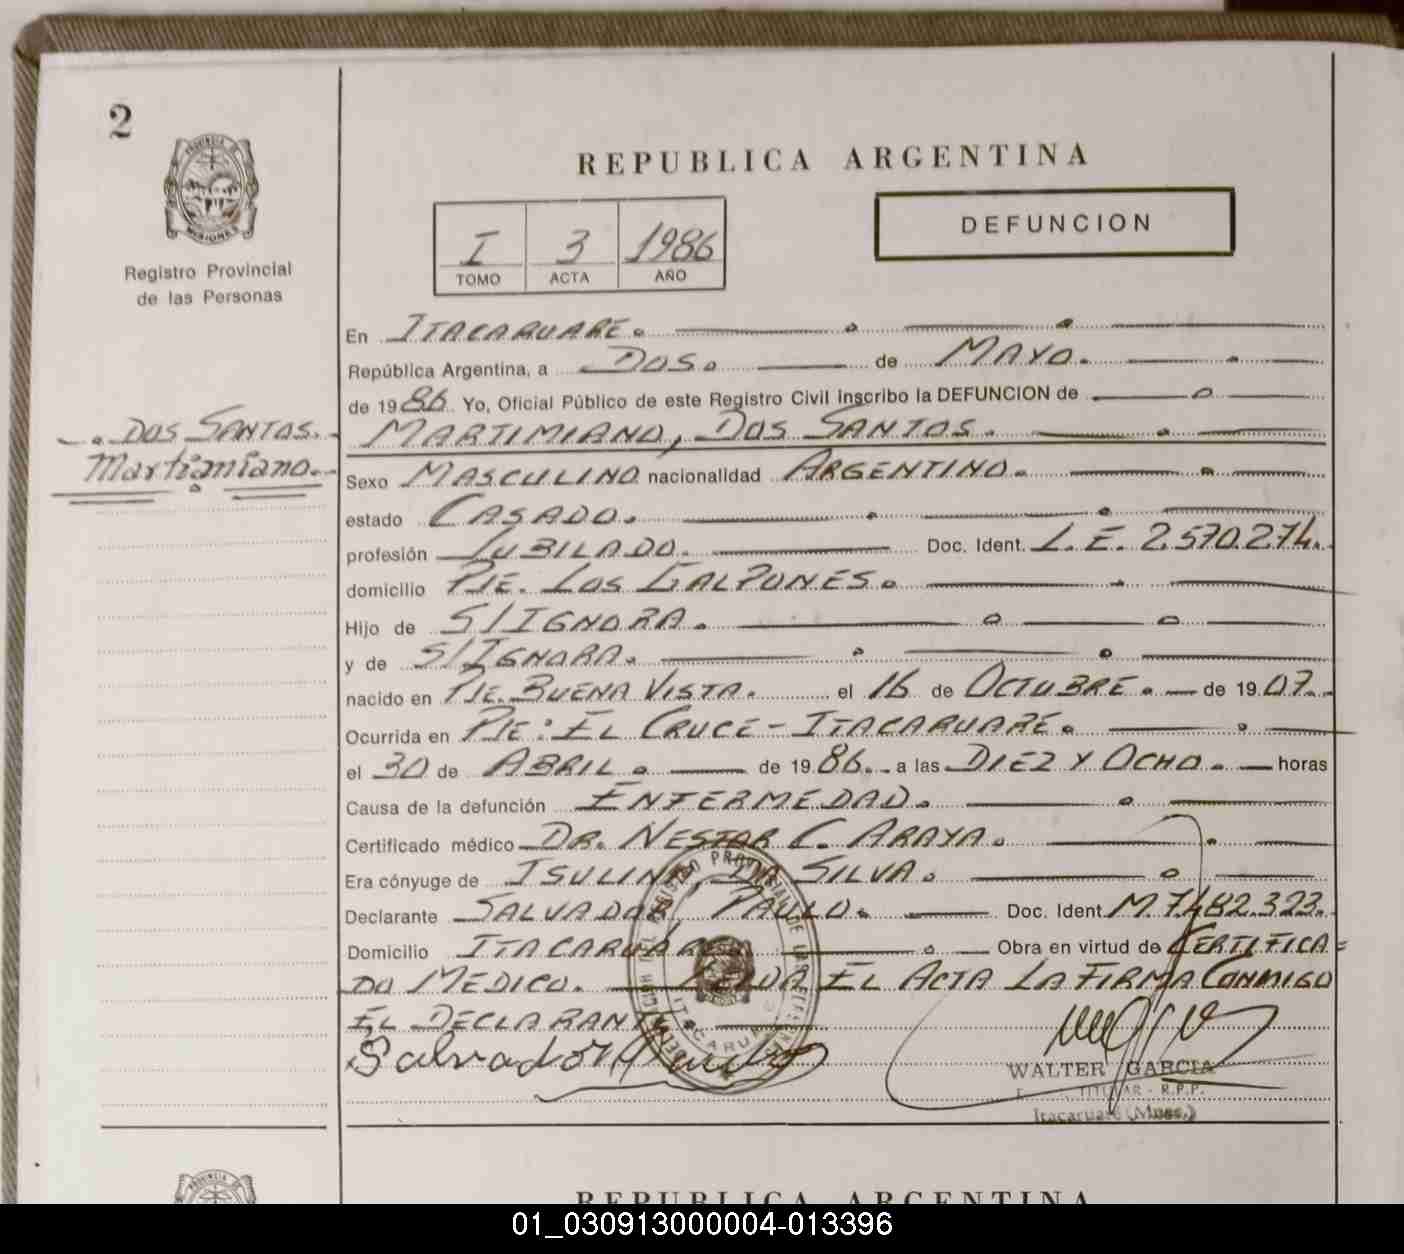 2
PROVINCIA DE
MISIONES
Registro Provincial
de las Personas
REPUBLICA ARGENTINA
DEFUNCION
I 3 1986
TOMO ACTA AÑO
En ITACARUARE.
República Argentina, a DOS. de MAYO.
de 1986 Yo, Oficial Público de este Registro Civil inscribo la DEFUNCION de
DOS SANTOS.
Martimiano.
MARTIMIANO, DOS SANTOS.
Sexo MASCULINO nacionalidad ARGENTINO.
estado CASADO.
profesión JUBILADO. Doc. Ident. L.E. 2.570.274.
domicilio PJE. LOS GALPONES.
Hijo de S/IGNORA.
y de S/IGNORA.
nacido en PJE. BUENA VISTA. el 16 de OCTUBRE. de 1907.
Ocurrida en PJE: EL CRUCE-ITACARUARE.
el 30 de ABRIL. de 1986. a las DIEZ Y OCHO. horas
Causa de la defunción ENFERMEDAD.
Certificado médico DR. NESTOR C. ARAYA.
Era cónyuge de ISULINA, DA SILVA.
Declarante SALVADOR, PAULO. Doc. Ident. M.7.482.323.
Domicilio ITACARUARE. Obra en virtud de CERTIFICA=
DO MEDICO. EL ACTA LA FIRMA CONMIGO
EL DECLARANTE
Salvador
WALTER GARCIA
TITULAR - R.P.P.
Itacaruaré (Mnes.)
PROVINCIA DE
REPUBLICA ARGENTINA
01_030913000004-013396